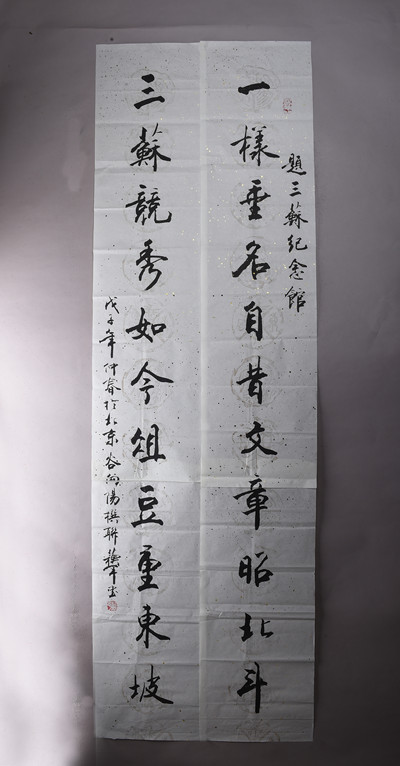 題三蘇紀念館
一樣垂名自昔文章昭北斗
三蘇競秀如今俎豆重東坡
戊子年仲春於北京谷向陽撰聯